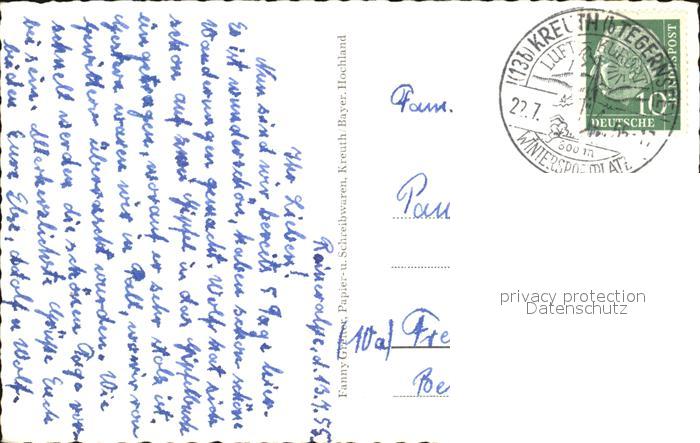 Raineralpe, d. 13.7.55
Ihr Lieben!
Nun sind wir bereits 5 Tage hier.
Es ist wunderschön, haben schon schöne
Wanderungen gemacht. Wolf hat sich
schon auf zwei Gipfel in das Gipfelbuch
eingetragen, worauf er sehr stolz ist.
Gestern waren wir in Tall, wo wir von
Gewitter überrascht wurden. Wie
schnell werden die schönen Tage vor-
bei sein. Allerherzlichste Grüße Euch
lieben Eure Else, Adolf u. Wolf.
Fanny Greiner, Papier- u. Schreibwaren, Kreuth/Bayer. Hochland
Fam.
Pau
(10a) Fre
Be
(13b) KREUTH (b TEGERNSEE)
LUFTKURORT
22.7.
800 m
WINTERSPORTPLATZ
10
DEUTSCHE
BUNDESPOST
privacy protection
Datenschutz